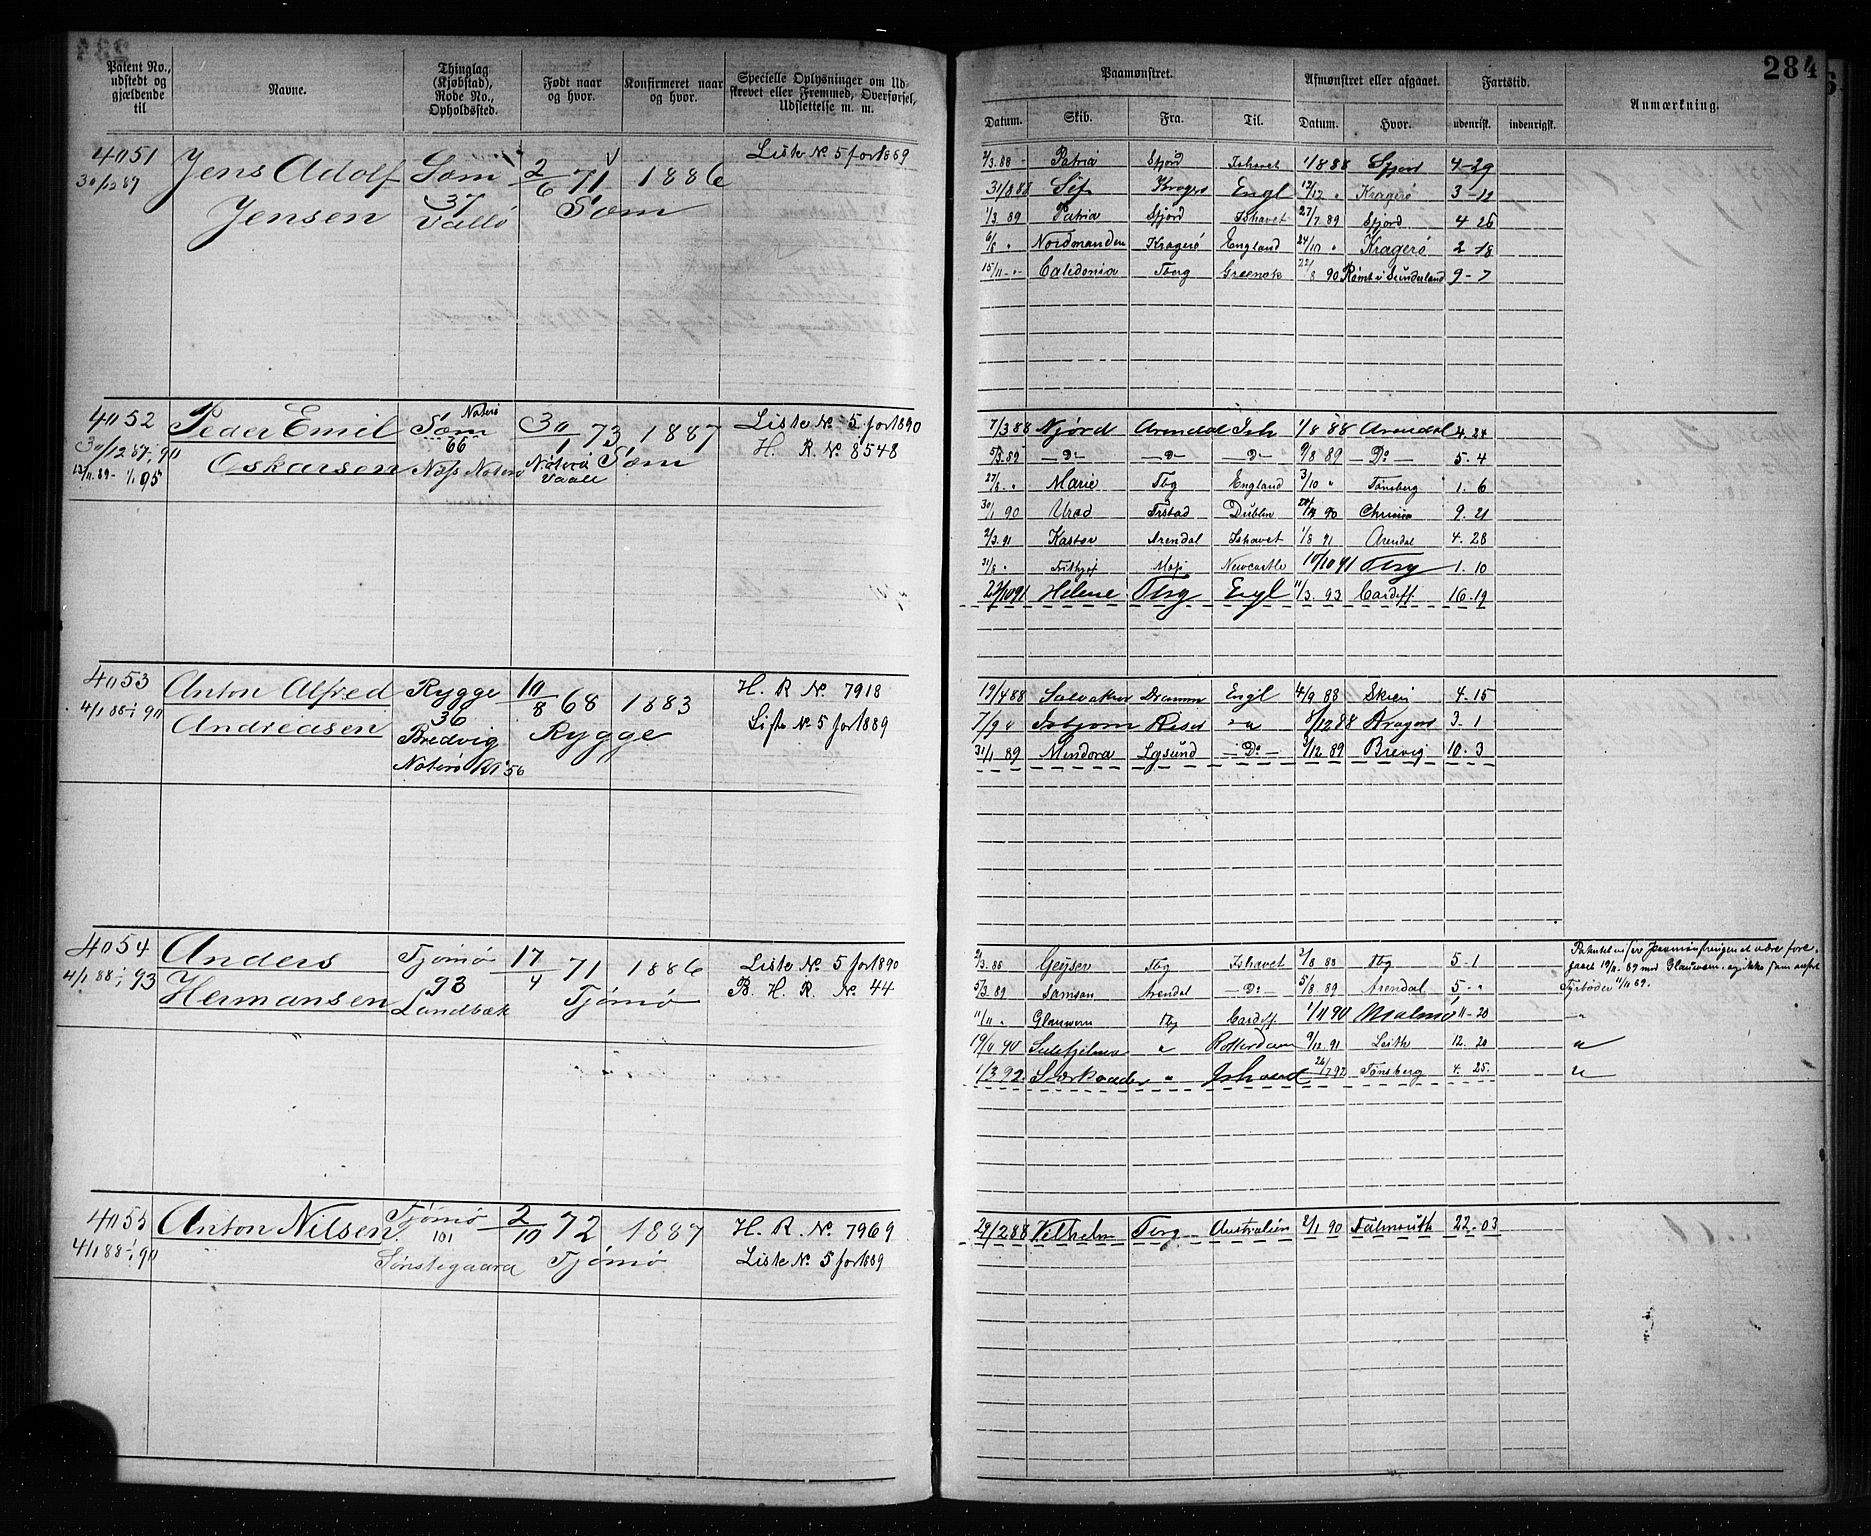 284
Patent No., udstedt og gjældende til
Navne.
Thinglag (Kjøbstad), Rode No., Opholdssted.
Født naar og hvor.
Konfirmeret naar og hvor.
Specielle Oplysninger om Udskrevet eller Fremmed, Overførsel, Udslettelse m. m.
Paamønstret.
Afmønstret eller afgaaet.
Fartstid.
Anmærkning.
Datum. Skib. Fra. Til. Datum. Hvor. udenrigsk. indenrigsk.
4051 Jens Adolf Sæm 2/6 71 1886 Liste No 5 for 1889
30/12 87 Jensen 37 Sæm
Vallø
2/3 88 Patria Sfjord Ishavet 1/8 88 Sfjord 4-29
31/8 88 Sif Kragerø Engl 12/12 " Kragerø 3-12
1/3 89 Patria Sfjord Ishavet 27/7 89 Sfjord 4 26
6/8 " Nordmanden Kragerø England 24/10 " Kragerø 2 18
15/11 - " Caledonia Tbrg Greenok 22/8 90 Rømt i Sunderland 9-7
4052 Peder Emil Sæm Nøterø 30/1 73 1887 Liste No 5 for 1890
30/12 87-1/1 90 Oskarsen 66 Nøterø Sæm H. R. No 8548
13/11 89- 1/1 95 Næss Nøterø Vaale
7/3 88 Njørd Arendal Ish 1/8 88 Arendal 4.24
5/3 89 -Do- -Do- -Do- 9/8 89 -Do- 5-4
27/8 - " Marie Tbg England 3/10 " Tønsberg 1. 6
30/1 90 Urad Frstad Dublin 90 9. 21
2/3. 91 Kastor Arendal Ishavet 1/8 91 Arendal 4. 28
31/8 " Frithjof Moss Newcastle 10/10 91 Tbrg 1. 10
27/10 91 Helene Tbrg Engl 11/3. 93 Cardiff 16-19
4053 Anton Alfred Rygge 10/8 68 1883 H. R No 7918
4/1 88-1/1 90 Andreasen 36 Rygge Liste No 5 for 1889
Bredvig
Nøterø No 56
19/4 88 Salvator Dramm Engl 4/9 88 Skien 4-15
7/9 " Isbjørn Risør -"- 8/12 88 Kragerø 3-1
31/1 89 Mindora Lgsund -Do- 3/12 89 Brevig 10. 3
4054 Anders Tjømø 17/4 71 1886 Liste No 5 for 1890
4/1 88-1/1 93 Hermansen 93 Tjømø B. H. R. No 44
Sandbæk
2/3. 88 Geysen Tbg Ishavet 2/8 88 Tbg 5-1
5/3. 89 Samson Arendal -Do- 5/8 89 Arendal 5- "
11/11 " Glauvern Tbg Cardiff 1/11 90 Malmø 11-20 "
19/11 90 " Rotterdam 9/12. 91 Leith 12. 20 "
1/3 92 " Ishavet 26/7 92 Tønsberg 4. 25. "
4055 Anton Nilsen Tjømø 2/10 72 1887 H. R. No. 7969
4/1 88-1/1 90 101 Tjømø Liste No 5 for 1889
Sønstegaard
29/2 88 Vilhelm Tbrg Australien 2/1 90 Falmouth 22-03